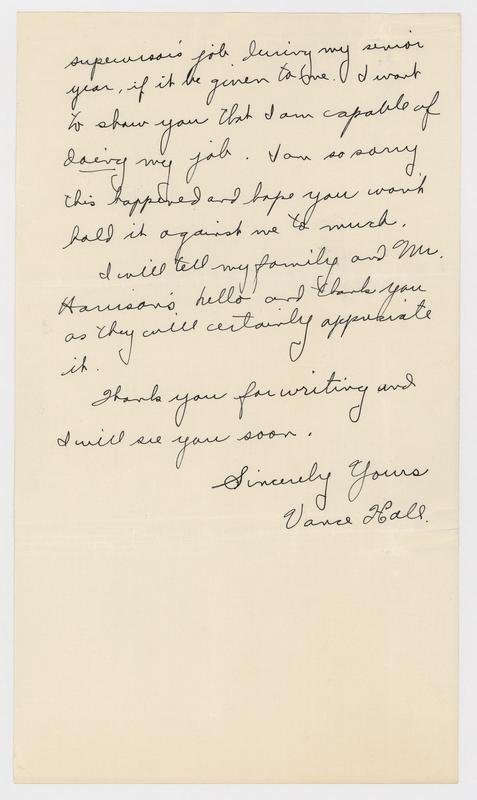 supervisor's job during my senior
year, if it be given to me. I want
to show you that I am capable of
doing my job. I am so sorry
this happened and hope you won't
hold it against me to much.
I will tell my family and Mr.
Harrison's hello and thank you
as they will certainly appreciate
it.
Thank you for writing and
I will see you soon.
Sincerely Yours
Vance Hall.